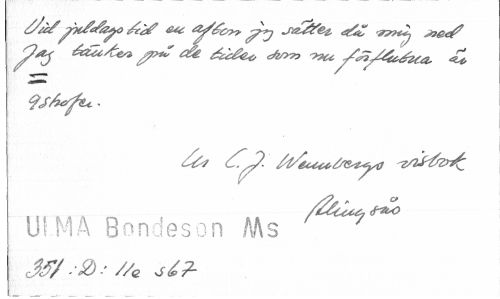 Vid juldagstid en afton jag sätter då mig ned
Jag tänker på de tider som nu förflutna är
=
9 strofer.
Ur C. J. Wennbergs visbok
Alingsås
ULMA Bondeson Ms
351:D:11e s67